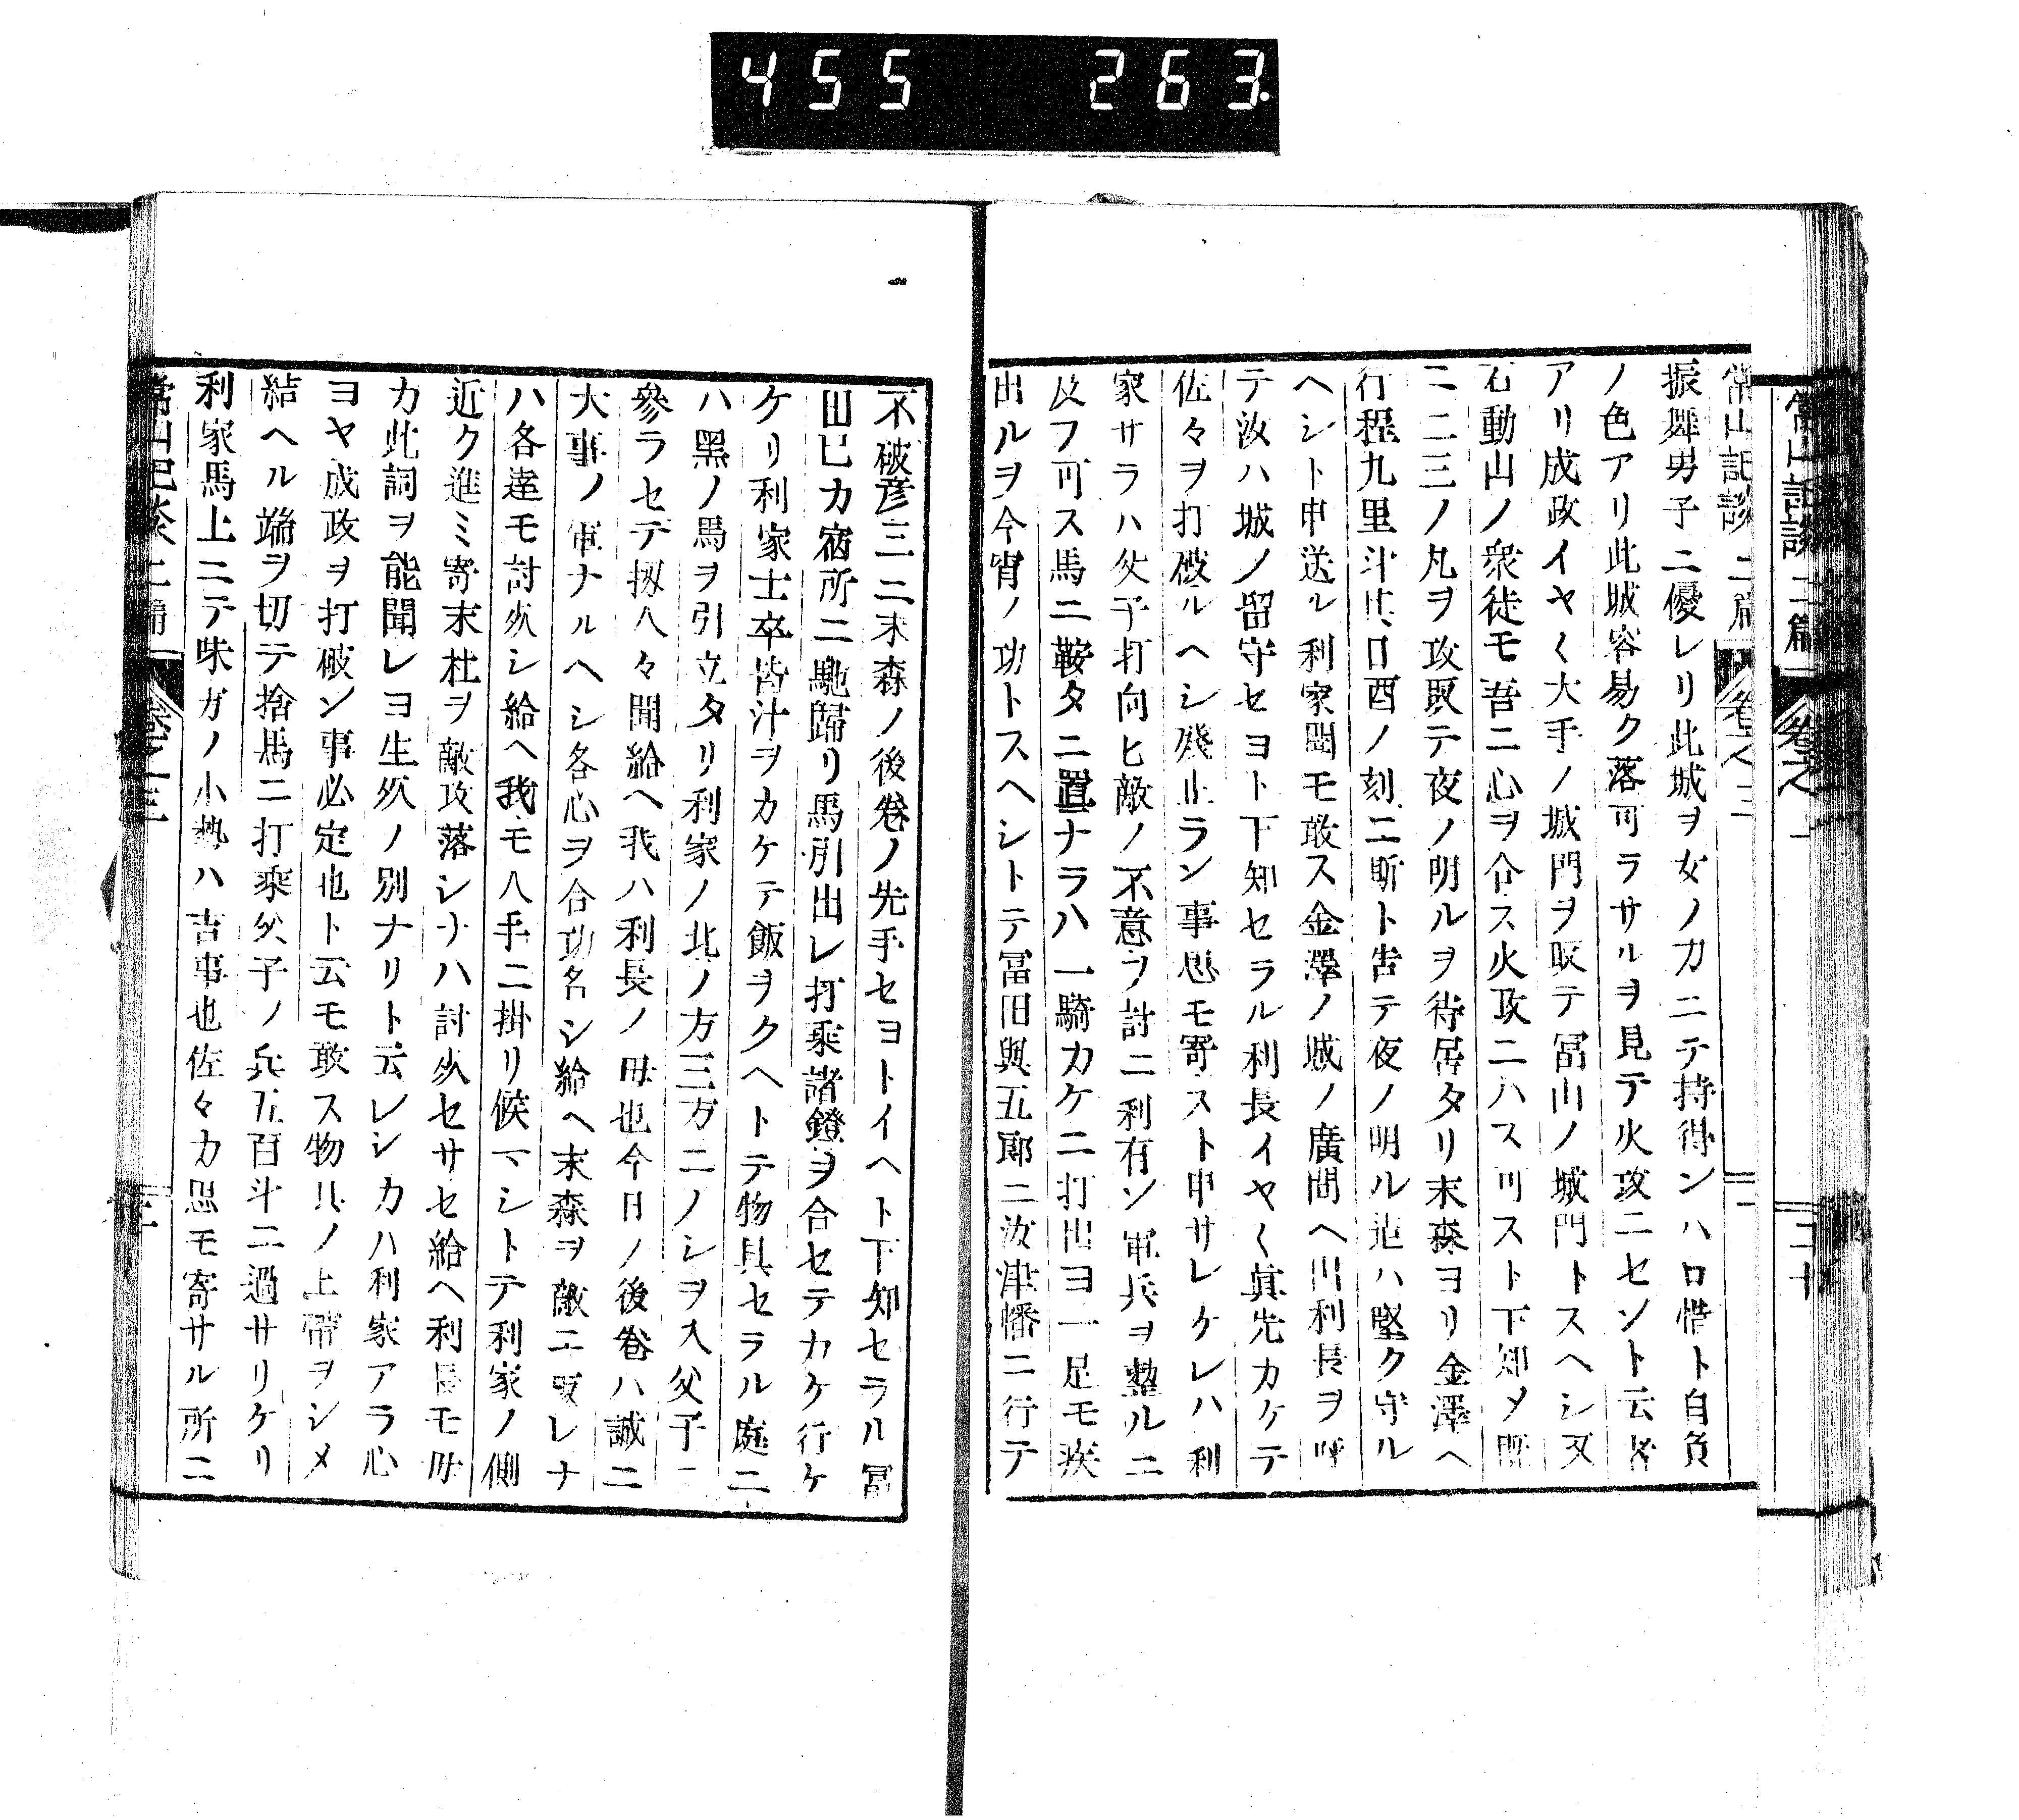 455 263
常山記談 二篇 卷之三
振舞男子ニ優レリ此城ヲ女ノ力ニテ持得ンハ口惜ト自負
ノ色アリ此城容易ク落可ラサルヲ見テ火攻ニセント云者
アリ成政イヤ〱大手ノ城門ヲ取テ冨山ノ城門トスヘシ又
石動山ノ衆徒モ吾ニ心ヲ合ス火攻ニハス可ストト下知メ既
ニ二三ノ凡ヲ攻取テ夜ノ明ルヲ待居タリ末森ヨリ金澤ヘ
行程九里斗其日酉ノ刻ニ斯ト告テ夜ノ明ル迠ハ堅ク守ル
ヘシト申送ル利家聞モ敢ス金澤ノ城ノ廣間ヘ出利長ヲ呼
テ汝ハ城ノ留守セヨト下知セラル利長イヤ〱眞先カケテ
佐々ヲ打破ルヘシ殘止ラン事思モ寄スト申サレケレハ利
家サラハ父子打向ヒ敵ノ不意ヲ討ニ利有ン軍兵ヲ整ルニ
及フ可ス馬ニ鞍タニ置ナラハ一騎カケニ打出ヨ一足モ疾
出ルヲ今宵ノ功トスヘシトテ冨田與五郎ニ汝津幡ニ行テ
不破彦三ニ末森ノ後卷ノ先手セヨトイヘト下知セラル冨
田已カ宿所ニ馳歸リ馬引出レ打乘諸鐙ヲ合セテカケ行ケ
ケリ利家士卒皆汁ヲカケテ飯ヲクヘトテ物具セラル庭ニ
ハ黑ノ馬ヲ引立タリ利家ノ北ノ方三方ニノシヲ入父子ニ
參ラセテ扨人々聞給ヘ我ハ利長ノ母也今日ノ後卷ハ誠ニ
大事ノ軍ナルヘシ各心ヲ合功名シ給ヘ末森ヲ敵ニ取レナ
ハ各逹モ討死シ給ヘ我モ人手ニ掛リ候マシトテ利家ノ側
近ク進ミ寄末杜ヲ敵攻落シナハ討死セサセ給ヘ利長モ母
カ此詞ヲ能聞レヨ生死ノ別ナリト云レシカハ利家アラ心
ヨヤ成政ヲ打破ン事必定也ト云モ敢ス物具ノ上帶ヲシメ
結ヘル端ヲ切テ捨馬ニ打乘父子ノ兵五百斗ニ過サリケリ
利家馬上ニテ味ガノ小勢ハ吉事也佐々カ思モ寄サル所ニ
常山記談 二篇 卷之三 三